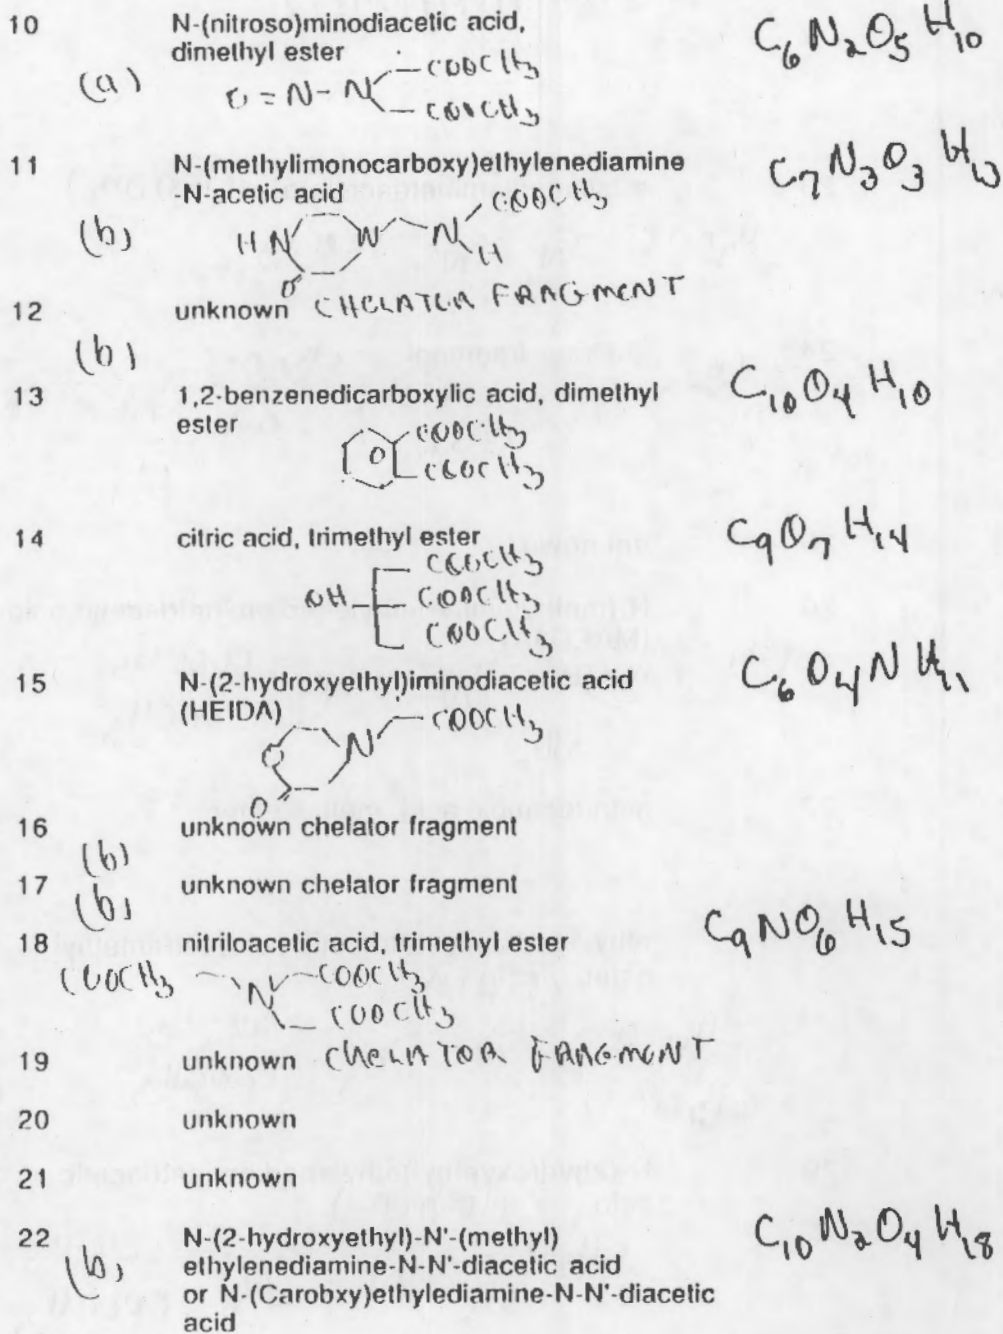 10 N-(nitroso)minodiacetic acid, C6N2O5H10
dimethyl ester
(a) O=N-N COOCH3
COOCH3
11 N-(methylimonocarboxy)ethylenediamine C7N3O3H13
-N-acetic acid
COOCH3
(b) HN N N
H
O
12 unknown CHELATOR FRAGMENT
(b)
13 1,2-benzenedicarboxylic acid, dimethyl C10O4H10
ester
COOCH3
COOCH3
14 citric acid, trimethyl ester C9O7H14
COOCH3
OH COOCH3
COOCH3
15 N-(2-hydroxyethyl)iminodiacetic acid C6O4NH11
(HEIDA)
N COOCH3
O
O
16 unknown chelator fragment
(b)
17 unknown chelator fragment
(b)
18 nitriloacetic acid, trimethyl ester C9NO6H15
COOCH3 N COOCH3
COOCH3
19 unknown CHELATOR FRAGMENT
20 unknown
21 unknown
22 N-(2-hydroxyethyl)-N'-(methyl) C10N2O4H18
(b) ethylenediamine-N-N'-diacetic acid
or N-(Carobxy)ethylediamine-N-N'-diacetic
acid